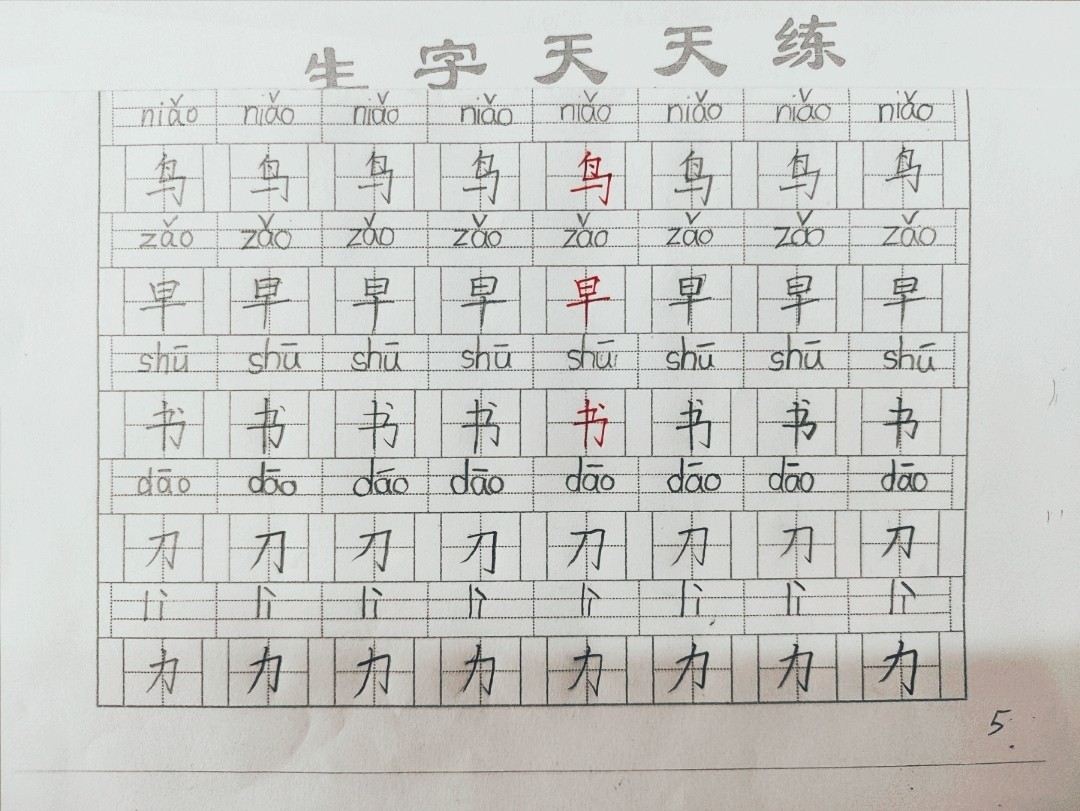 生字天天练
niǎo niǎo niǎo niǎo niǎo niǎo niǎo niǎo
鸟 鸟 鸟 鸟 鸟 鸟 鸟 鸟
zǎo zǎo zǎo zǎo zǎo zǎo zǎo zǎo
早 早 早 早 早 早 早 早
shū shū shū shū shū shū shū shū
书 书 书 书 书 书 书 书
dāo dāo dāo dāo dāo dāo dāo dāo
刀 刀 刀 刀 刀 刀 刀 刀
lì lì lì lì lì lì lì lì
力 力 力 力 力 力 力 力
5.